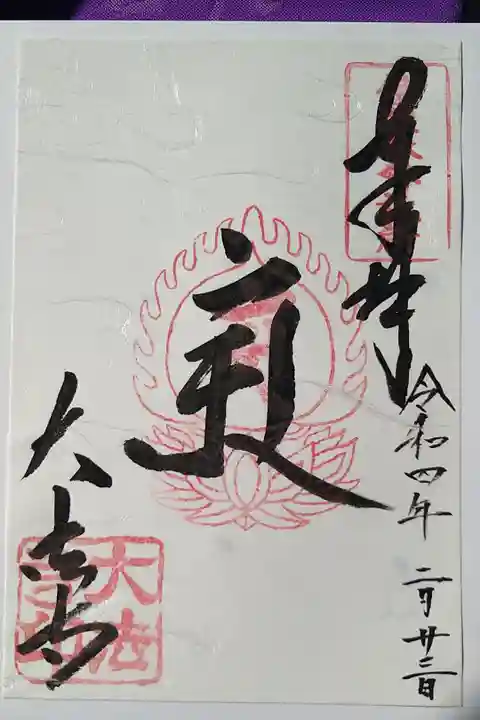 奉拝
令和四年 二月廿三日
大法寺
大法
寺印